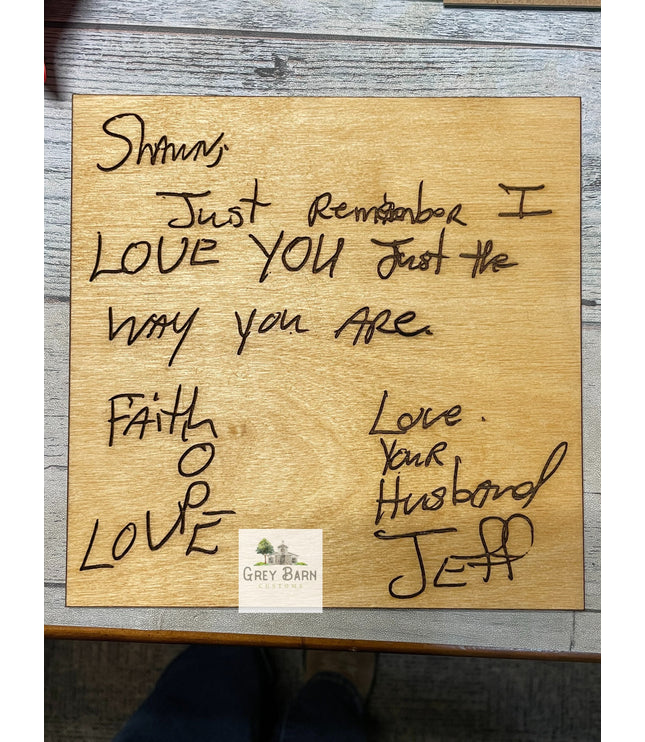 Shawn,
Just Remember I
LOVE YOU Just the
WAY YOU ARe.
FAith
O
P
LOVE
Love.
YOUR
Husband
Jeff
GREY BARN
CUSTOMS